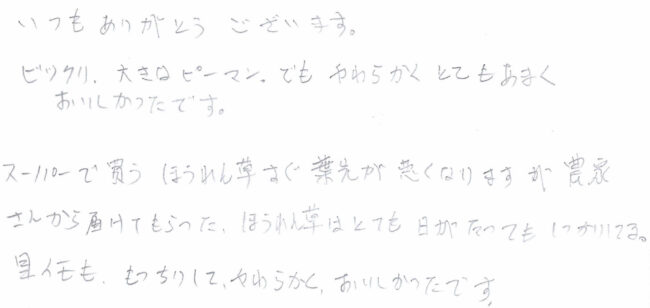 いつもありがとう ございます。
ビックリ、大きなピーマン。でも やわらかく とてもあまく
おいしかったです。
スーパーで買う ほうれん草 すぐ 葉先が 悪くなりますが 農家
さんから届けてもらった、ほうれん草はとても 日が たっても しっかりしてる。
里イモも、もっちりして、やわらかく、おいしかったです